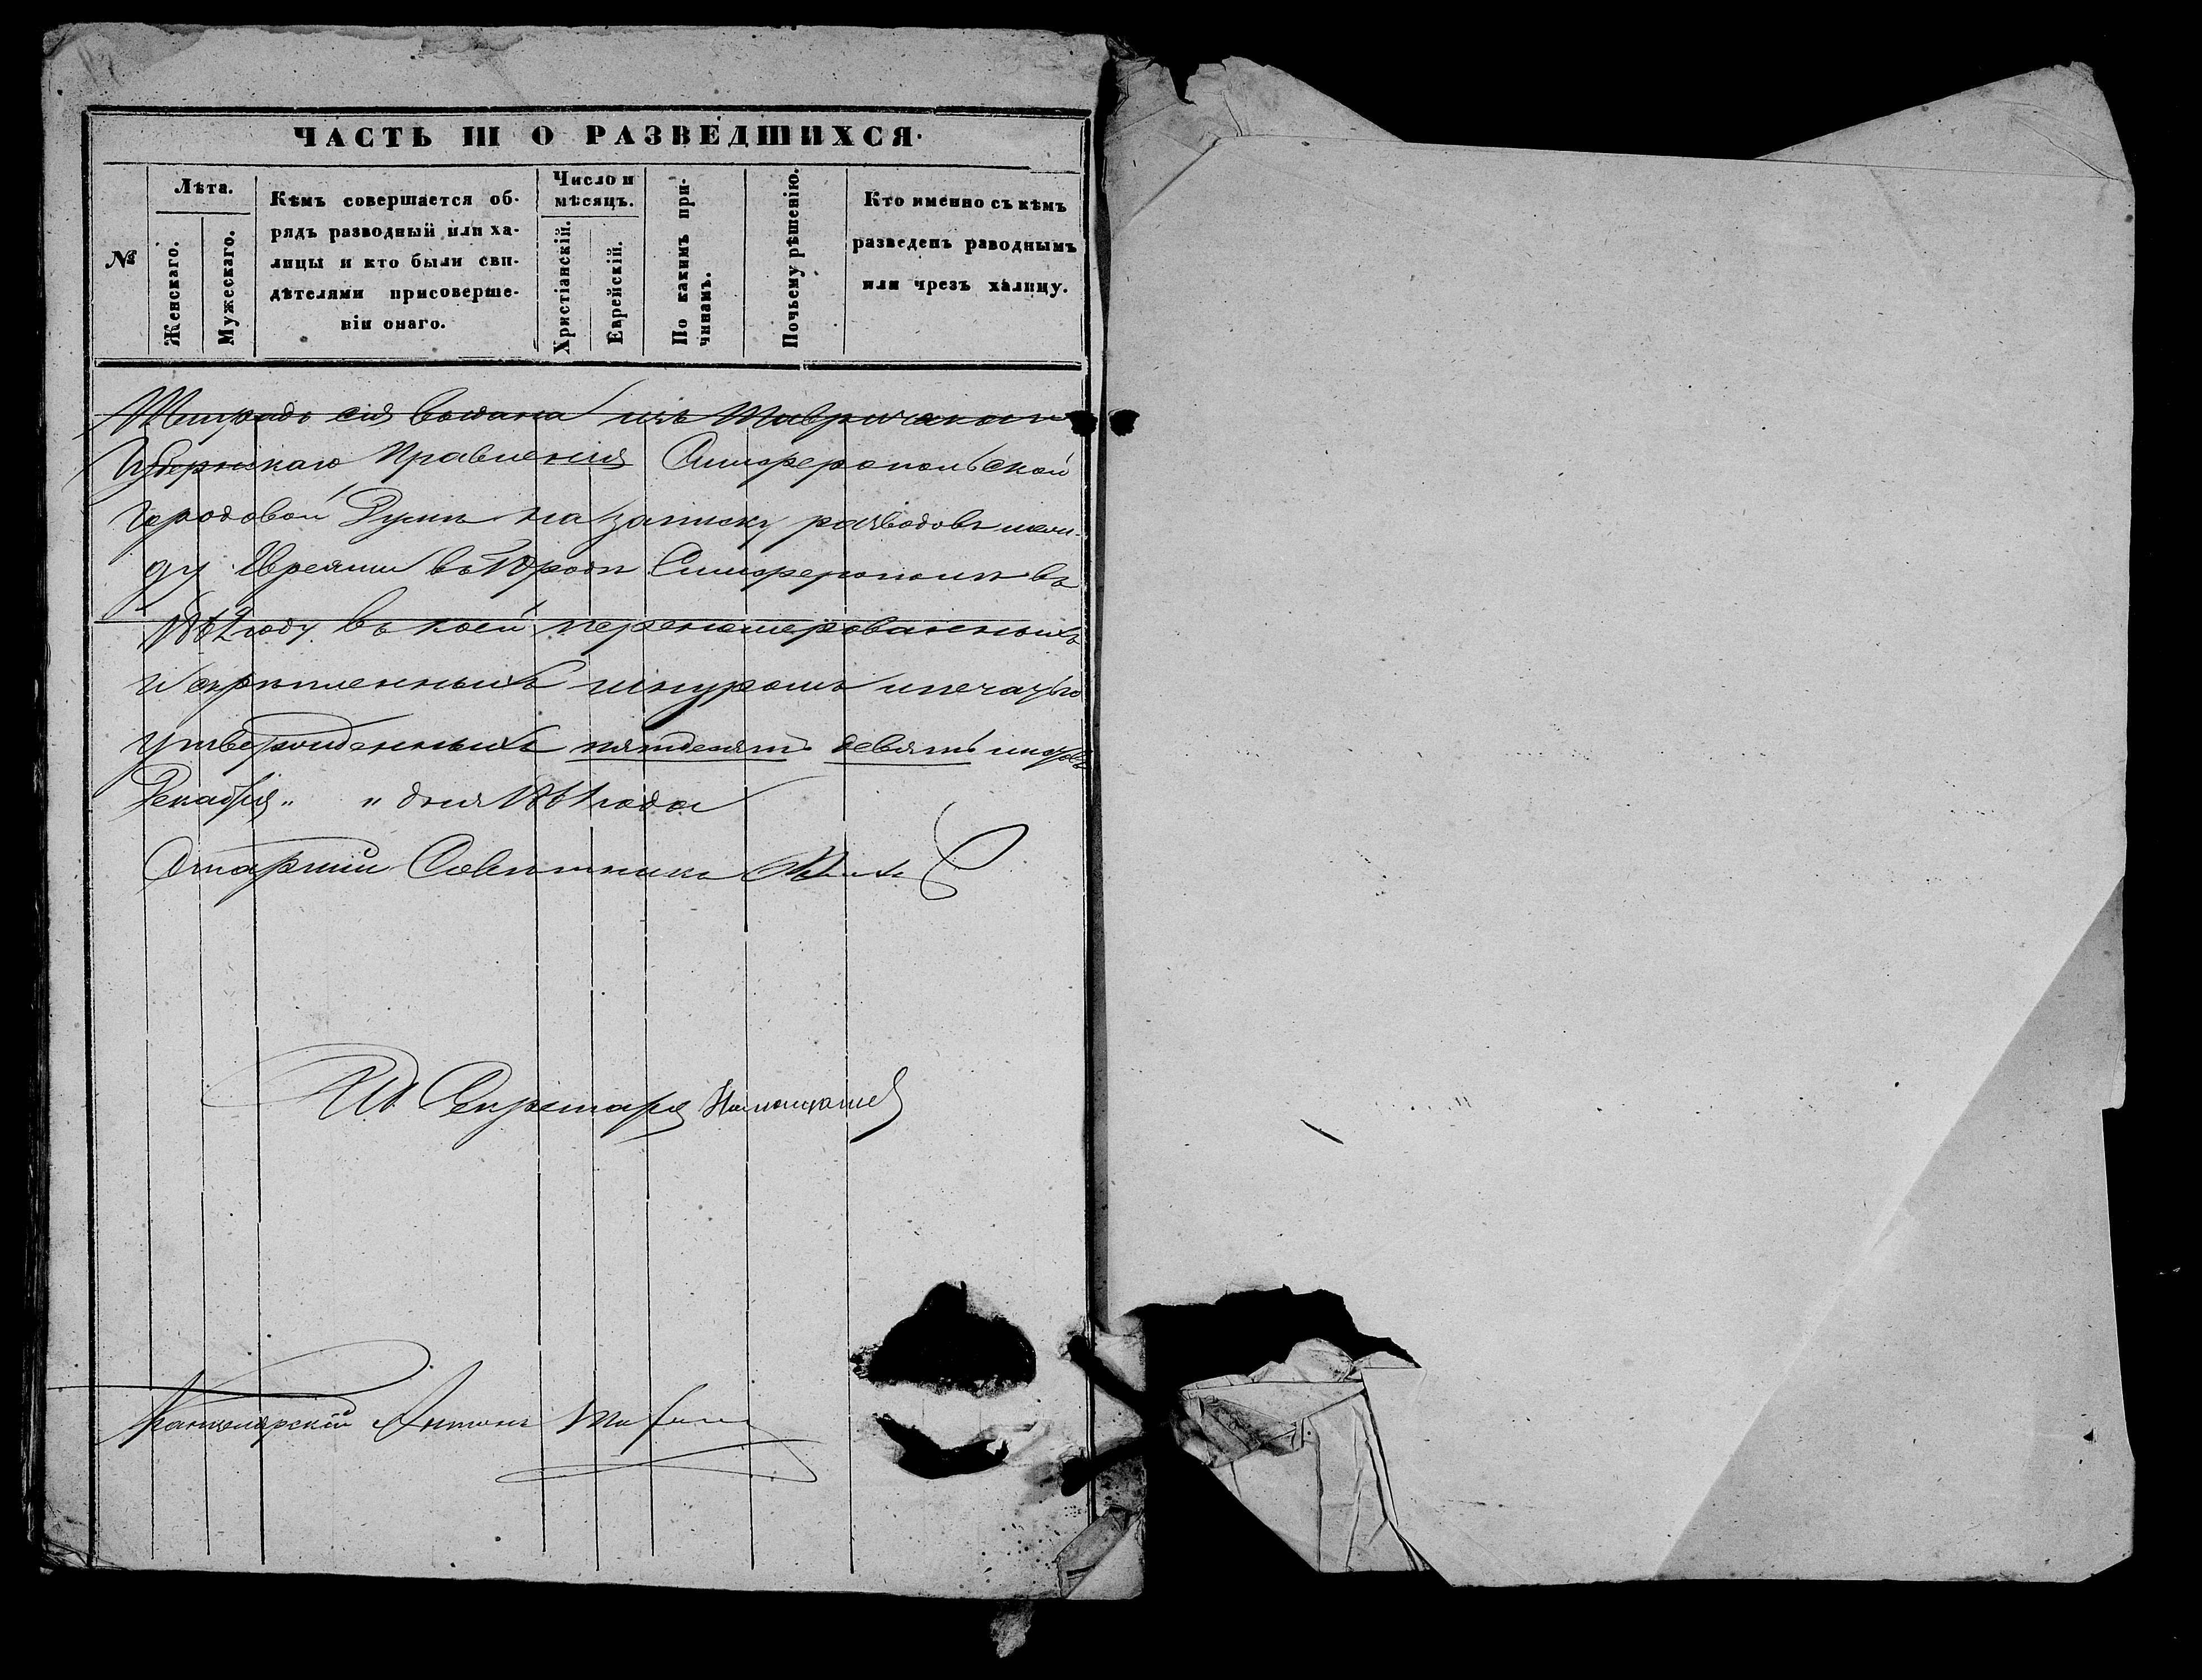 ЧАСТЬ III О РАЗВЕДШИХСЯ.
№
Лѣта.
Женскаго.
Мужескаго.
Кѣмъ совершается об-
рядъ разводный или ха-
лицы и кто были сви-
дѣтелями присоверше-
нiи онаго.
Число и
мѣсяцъ.
Христiанскiй.
Еврейскiй.
По какимъ при-
чинамъ.
Почьему рѣшенiю.
Кто именно съ кѣмъ
разведенъ раводнымъ
или чрезъ халицу.
Тетрадь сiя выдана изъ Таврическаго
Губернскаго Правленiя Симферопольской
Городовой Думѣ на записку разводовъ меж-
ду Евреями въ Городѣ Симферополѣ въ
1862 году въ коей перенумерованныхъ
и скрѣпленныхъ шнуромъ и печатью
утвержденныхъ пятдесятъ девять листовъ
Декабря „ „ дня 1861 года
Старшiй Совѣтникъ
И.д. Секретаря
Канцелярскiй Антонъ